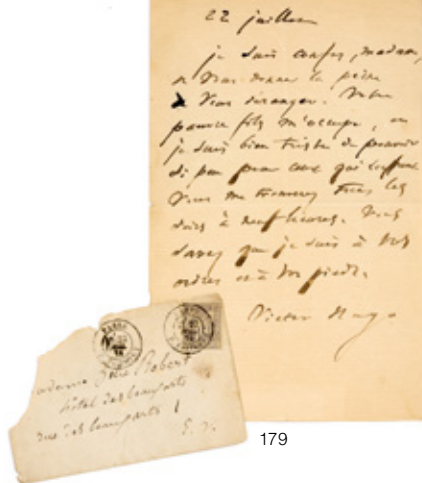 22 juillet
je suis confus, madame,
de vous donner la peine
de vous déranger. Votre
pauvre fils m'occupe, et
je suis bien triste de pouvoir
si peu pour ceux qui souffrent
Vous me trouverez tous les
soirs à neuf heures. Vous
savez que je suis à vos
ordres et à vos pieds.
Victor Hugo
Madame Robert
hôtel des beaux arts
rue des beaux arts 1
E. V.
179